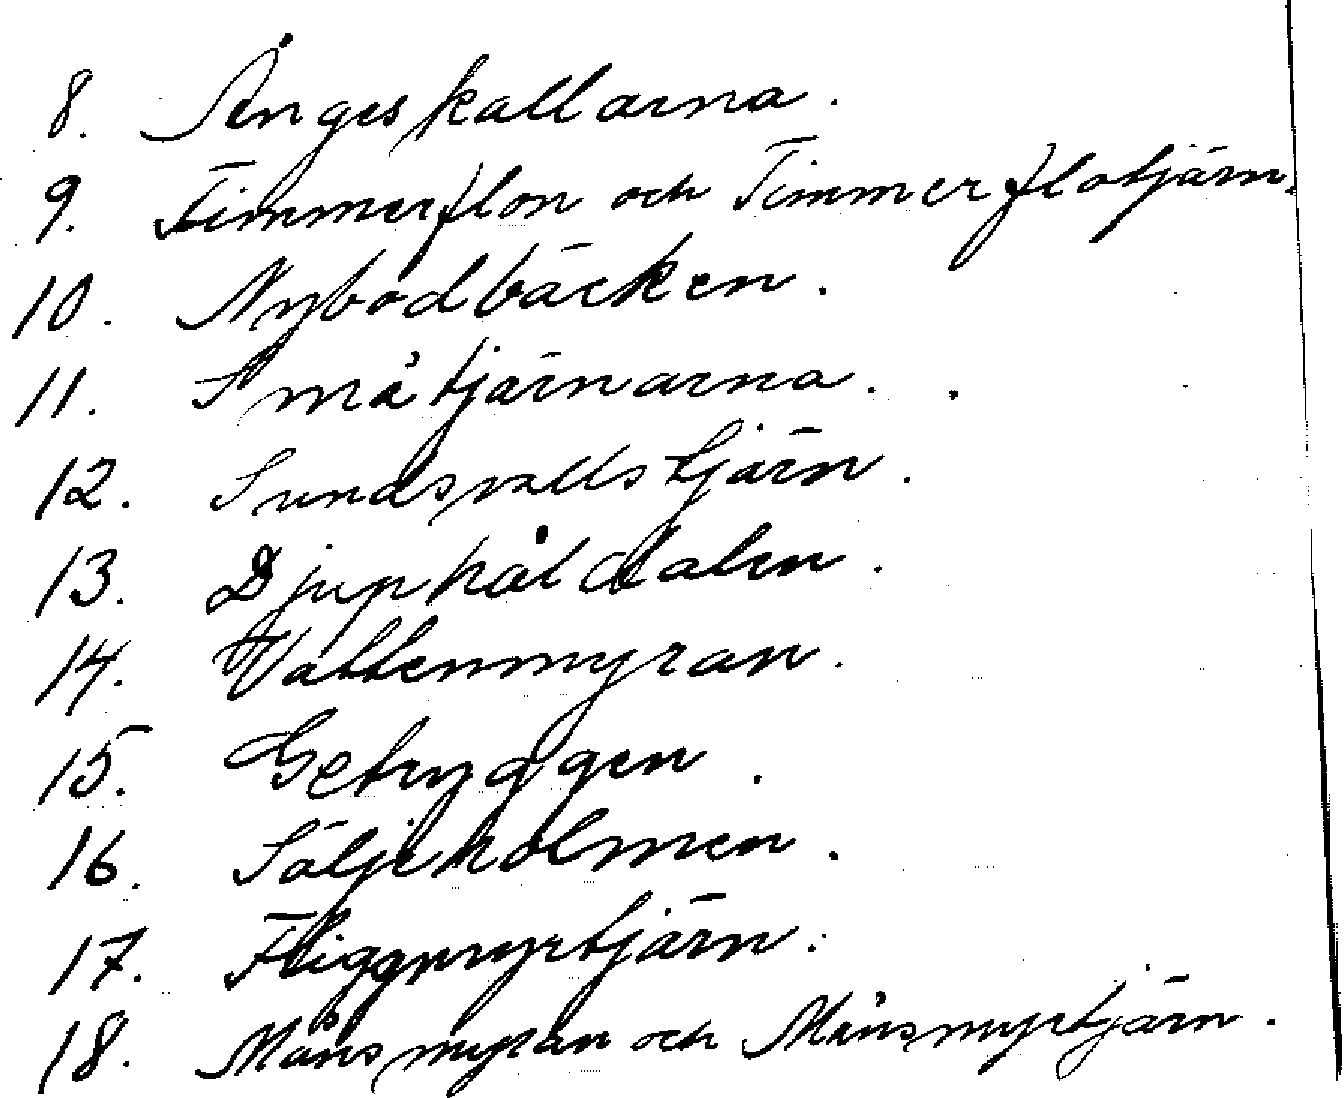 8. Ångeskallarna.
9. Timmerflon och Timmerflotjärn.
10. Nybodbäcken.
11. Småtjärnarna.
12. Sundsvallstjärn.
13. Djuphåldalen.
14. Vattenmyran.
15. Getryggen.
16. Säljeholmen.
17. Fliggmyrtjärn.
18. Månsmyran och Månsmyrtjärn.